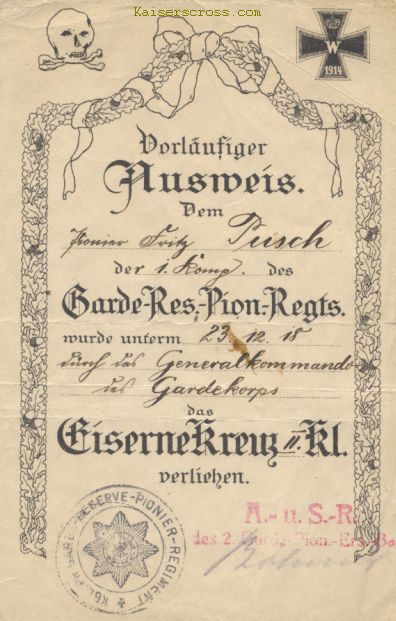 Kaiserscross.com
W
1914
Vorläufiger
Ausweis.
Dem
Pionier Fritz Pusch
der 1. Komp. des
Garde-Res.-Pion.-Regts.
wurde unterm 23.12.18
durch das Generalkommando
des Gardekorps
das
Eiserne Kreuz II. Kl.
verliehen.
A.- u. S.-R.
des 2. Garde-Pion.-Ers.-Ba
GARDE-RESERVE-PIONIER-REGIMENT